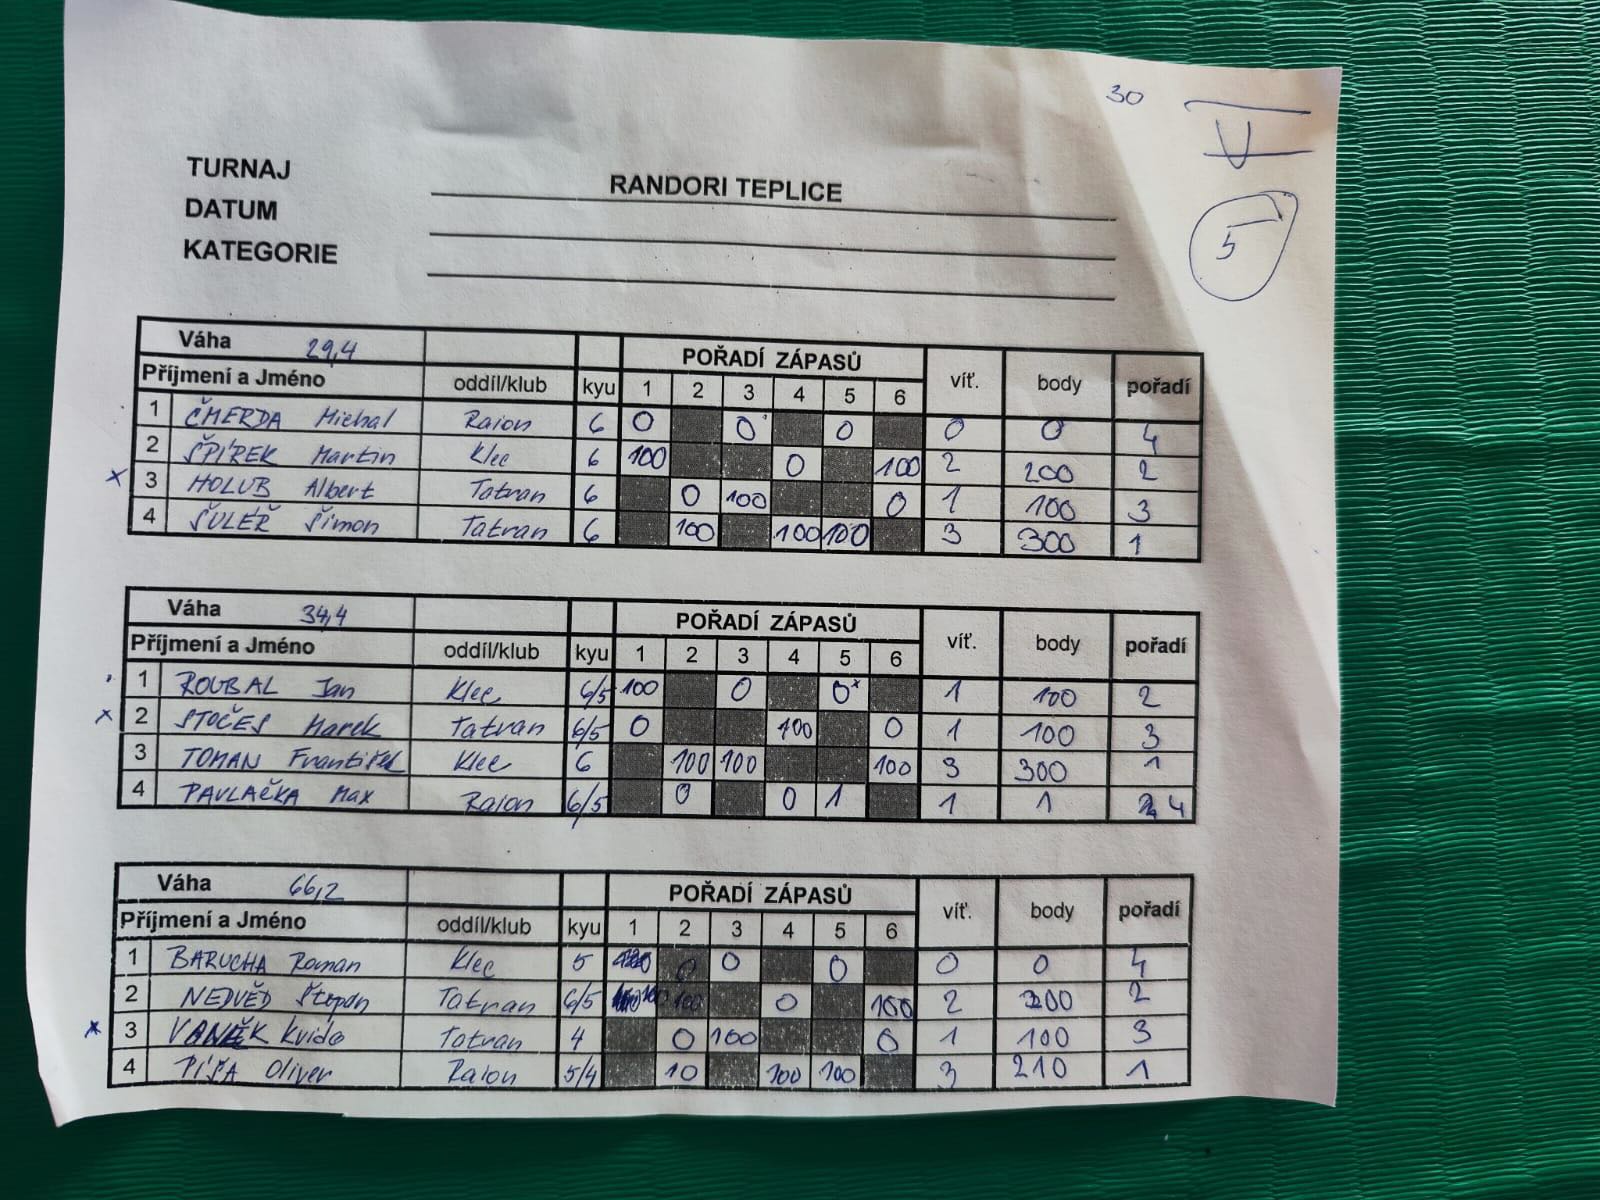 30
V
5
TURNAJ RANDORI TEPLICE
DATUM
KATEGORIE
Váha 29,4 POŘADÍ ZÁPASŮ víť. body pořadí
Příjmení a Jméno oddíl/klub kyu 1 2 3 4 5 6
1 ČMERDA Michal Raion 6 0 0 0 0 0 4
2 ŠPÍREK Martin Klec 6 100 0 100 2 200 2
x 3 HOLUB Albert Tatran 6 0 100 0 1 100 3
4 ŠULÉŘ Šimon Tatran 6 100 100 100 3 300 1
Váha 34,4 POŘADÍ ZÁPASŮ víť. body pořadí
Příjmení a Jméno oddíl/klub kyu 1 2 3 4 5 6
1 ROUBAL Jan Klec 6/5 100 0 0x 1 100 2
x 2 STOČES Marek Tatran 6/5 0 100 0 1 100 3
3 TOMAN František Klec 6 100 100 100 3 300 1
4 PAVLAČKA Max Raion 6/5 0 0 1 1 1 4
Váha 66,2 POŘADÍ ZÁPASŮ víť. body pořadí
Příjmení a Jméno oddíl/klub kyu 1 2 3 4 5 6
1 BARUCHA Roman Klec 5 0 0 0 0 0 4
2 NEDVĚD Štěpán Tatran 6/5 100 0 100 2 200 2
x 3 VANĚK Kvido Tatran 4 0 100 0 1 100 3
4 PÍŠA Oliver Raion 5/4 10 100 100 3 210 1